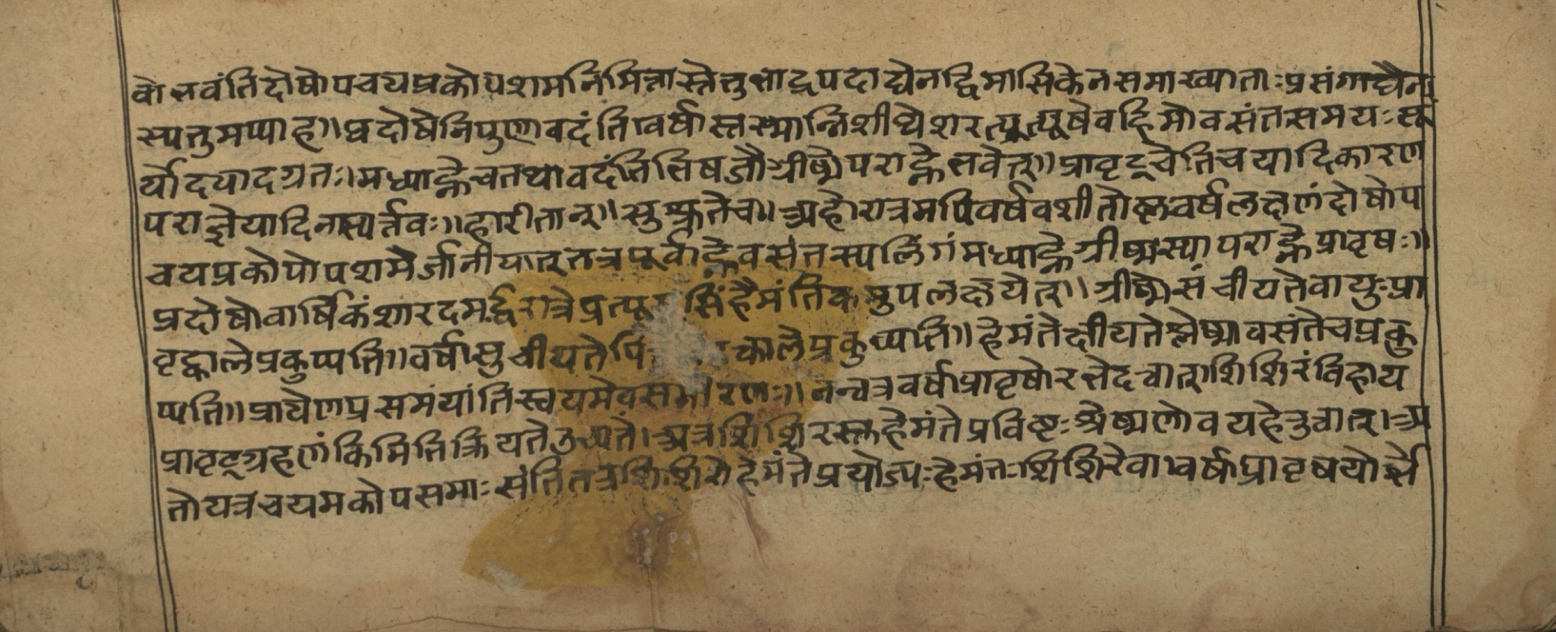 वो भवंति दोषोपचयप्रकोपशमनिमित्तास्तेतुभाद्रपदाद्येनद्विमासिकेनसमाख्याताः प्रसंगाद्यैन
स्यत्तुमप्याह॥ प्रदोषेनिपुणावदंति वर्षास्तस्मान्निशीथेशरत्प्रत्यूषेवहिमोवसंतसमयः सू
र्योदयादग्रतः॥ मध्याह्नेचतथावदंतिभिषजौग्रीष्मेपराह्नेभवेत्॥ प्रावृट्चेतिचयादिकारण
पराज्ञेयादिनास्यर्त्तवः॥ हारीतात्॥ सुश्रुतेच॥ अहोरात्रमपिवर्षवशीतोष्णवर्षलक्षणंदोषोप
चयप्रकोपोपशमैर्जानीयात् तत्रपूर्वाह्नेवसंतस्यलिंगंमध्याह्नेग्रीष्मस्यापराह्नेप्रावृषः॥
प्रदोषोवार्षिकंशारदमर्द्धरात्रेप्रत्यू सिंहैमंतिकमुपलक्षयेत्॥ ग्रीष्मेसंचीयतेवायुः प्रा
वृट्कालेप्रकुप्यति॥ वर्षासुचीयतेपि कालेप्रकुप्यति॥ हेमंतेचीयतेश्लेष्मावसंतेचप्रकु
प्यति॥ प्रायेणप्रसमंयांतिस्वयमेवसमीरणः॥ नन्वत्रवर्षाप्रावृषोरभेदत्वात् शिशिरंविहाय
प्रावृट्ग्रहणंकिमितिक्रियतेउच्यते। अत्रशिशिरस्तुहेमंतेप्रविष्टः श्लैष्मणोवयहेतुत्वात्। अ
तोयत्रचयमकोपसमाः संतितत्रशिशिरोहेमंतेप्रयोज्यः हेमंतः शिशिरेवा वर्षाप्रावृषयोर्भे